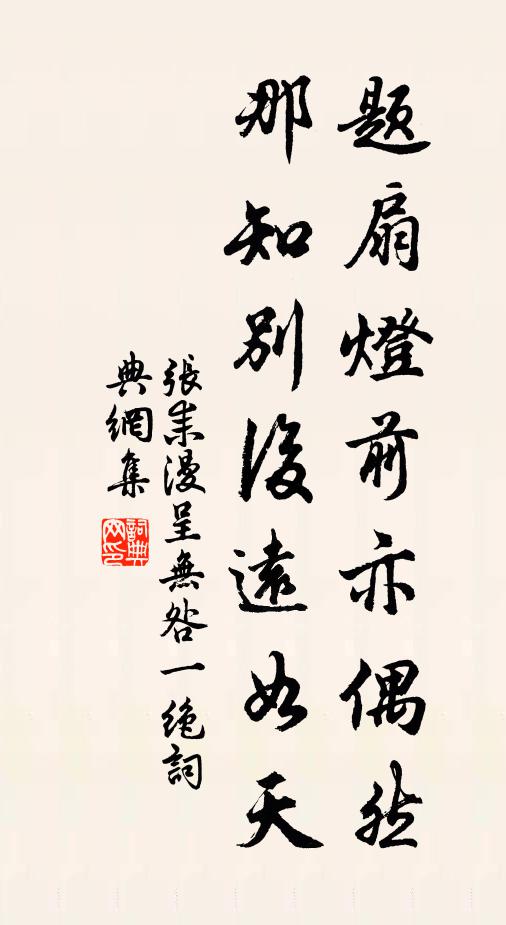 題扇燈前亦偶然
那知別後遠如天
張耒漫呈無咎一絶詞
典網集
詞典
网印